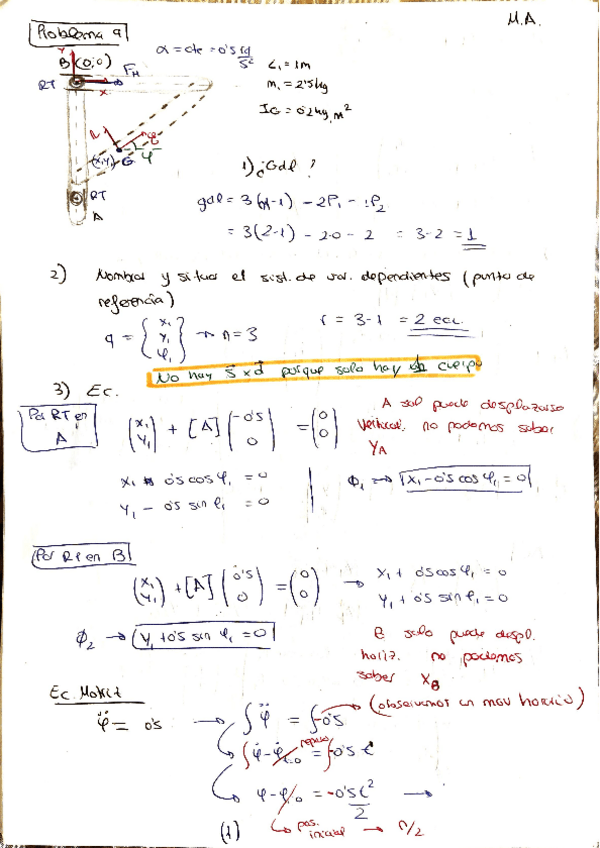 M.A.
Problema 9
B (0,0)
α = cte = 0'5 rd/s²
L₁ = 1m
m₁ = 2'5 kg
IG = 0'2 kg m²
RT
Y
X
F_M
(x₁,y₁) G
φ
RT
A
1) ¿Gdl?
gdl = 3(n-1) - 2P₁ - 1P₂
= 3(2-1) - 2·0 - 2 = 3-2 = 1
2) Nombrar y situar el sist. de var. dependientes (punto de
referencia)
q = {x₁ y₁ φ₁} → n = 3
r = 3-1 = 2 ecu.
No hay s x d porque solo hay 1 cuerpo
3) Ec.
Por RT en A
(x₁ y₁) + [A] (-0'5 0) = (0 0)
A sol puede desplazarse
vertical. no podemos saber
y_A
x₁ - 0'5 cos φ₁ = 0
y₁ - 0'5 sin φ₁ = 0
Φ₁ → x₁ - 0'5 cos φ₁ = 0
Por RT en B
(x₁ y₁) + [A] (0'5 0) = (0 0) → x₁ + 0'5 cos φ₁ = 0
y₁ + 0'5 sin φ₁ = 0
Φ₂ → y₁ + 0'5 sin φ₁ = 0
B solo puede despl.
horiz. no podemos
saber x_B
Ec. Motriz
φ̈ = 0'5 → ∫φ̈ = ∫-0'5 (observemos un mov horario)
∫φ̇ - φ̇₁,₀ = ∫-0'5 t
reposo
φ - φ₁,₀ = -0'5 t²/2 →
(1) pos. inicial → π/2